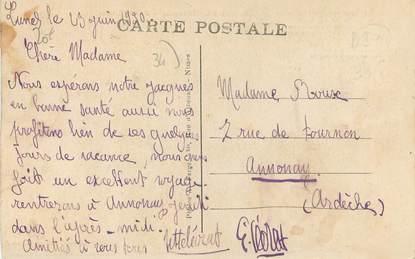 Lunes le 13 juin 1930.
CARTE POSTALE
Chère Madame
Nous espérons notre Jacques
en bonne santé aussi nous
profitons bien de ses quelques
jours de vacance, nous avons
fait un excellent voyage
rentrerons à Annonay jeudi
dans l'après-midi.
Amitiés à vous tous
Madame Roux
2 rue de Tournon
Annonay
(Ardèche)